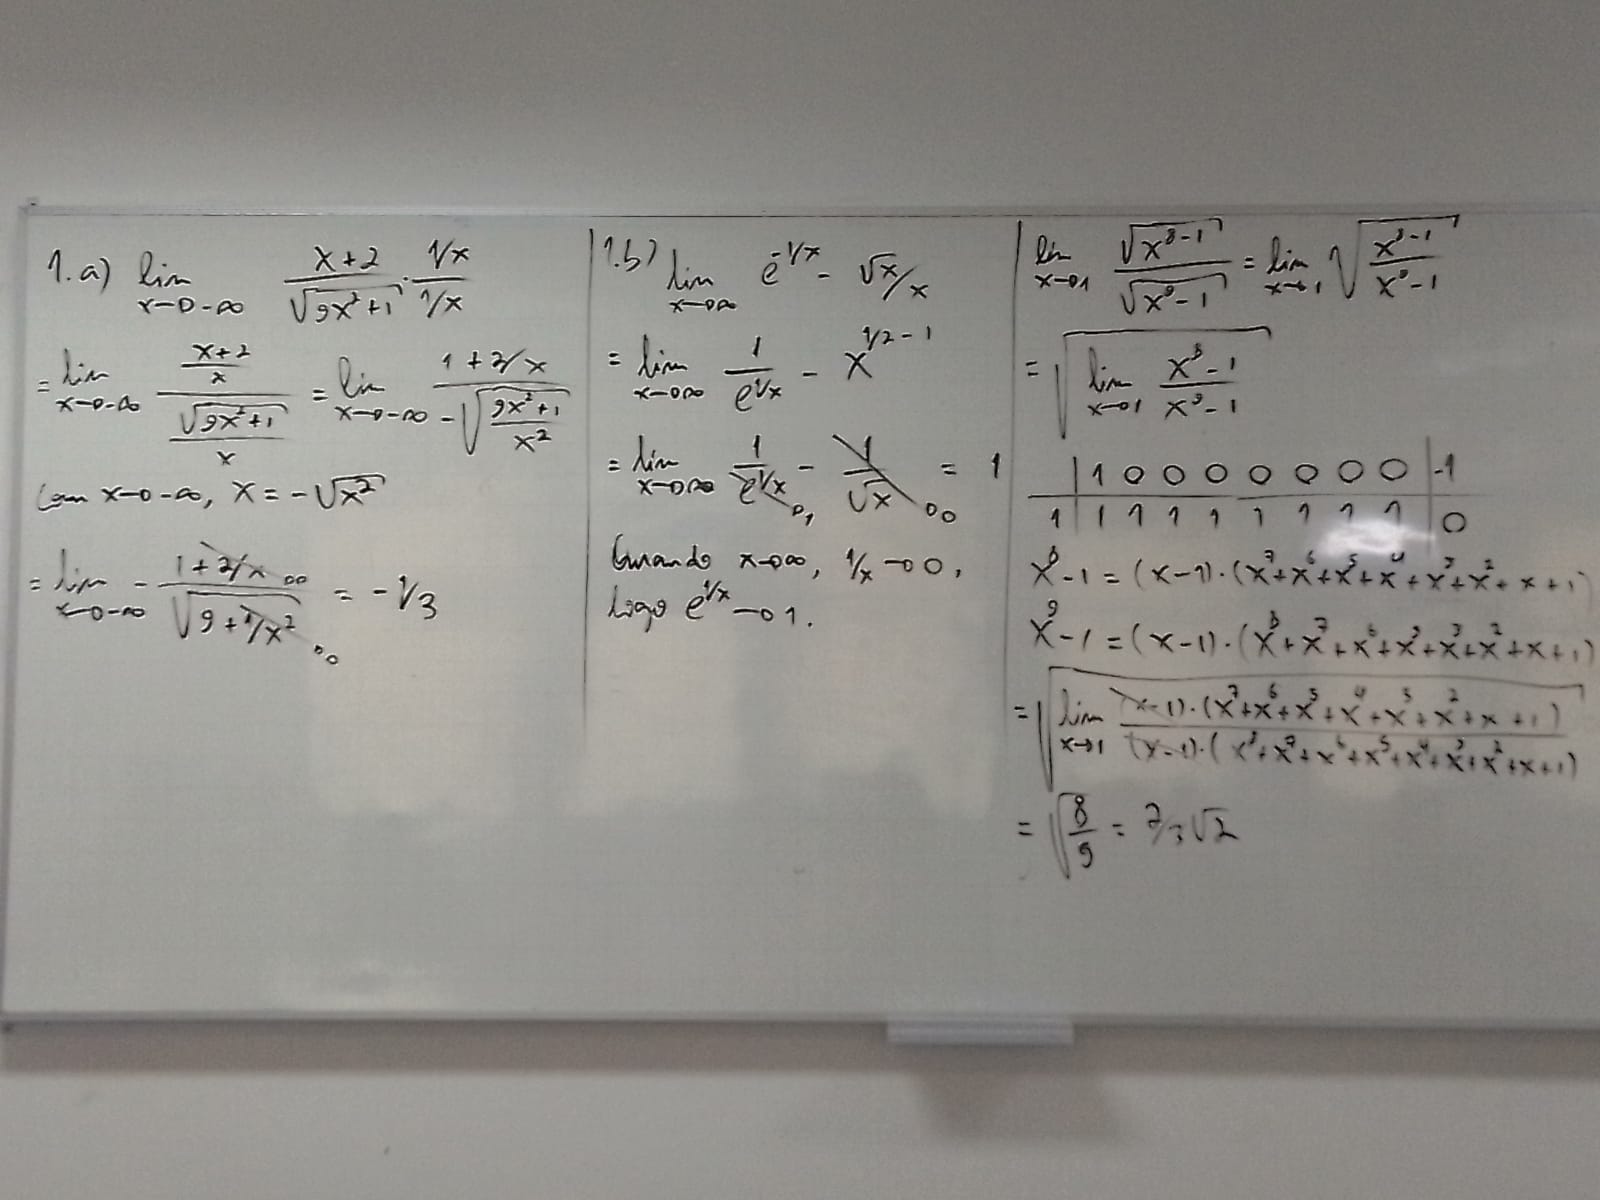 1.a) lim x→-∞ (x+2)/√(9x²+1) · (1/x)/(1/x)
= lim x→-∞ ((x+2)/x)/(√(9x²+1)/x) = lim x→-∞ (1+2/x)/(-√((9x²+1)/x²))
Com x→-∞, x = -√x²
= lim x→-∞ - (1+2/x →0)/√(9+1/x² →0) = -1/3
1.b) lim x→∞ e^(-1/x) - √x/x
= lim x→∞ 1/e^(1/x) - x^(1/2-1)
= lim x→∞ 1/e^(1/x) →1 - 1/√x →0 = 1
Quando x→∞, 1/x→0,
logo e^(1/x)→1.
lim x→1 √(x⁸-1)/√(x⁹-1) = lim x→1 √((x⁸-1)/(x⁹-1))
= √(lim x→1 (x⁸-1)/(x⁹-1))
| 1 0 0 0 0 0 0 0 | -1
1 | 1 1 1 1 1 1 1 1 | 0
x⁸-1 = (x-1)·(x⁷+x⁶+x⁵+x⁴+x³+x²+x+1)
x⁹-1 = (x-1)·(x⁸+x⁷+x⁶+x⁵+x³+x²+x+1)
= √(lim x→1 (x-1)·(x⁷+x⁶+x⁵+x⁴+x³+x²+x+1)/(x-1)·(x⁸+x⁷+x⁶+x⁵+x⁴+x³+x²+x+1))
= √(8/9) = 2/3√2